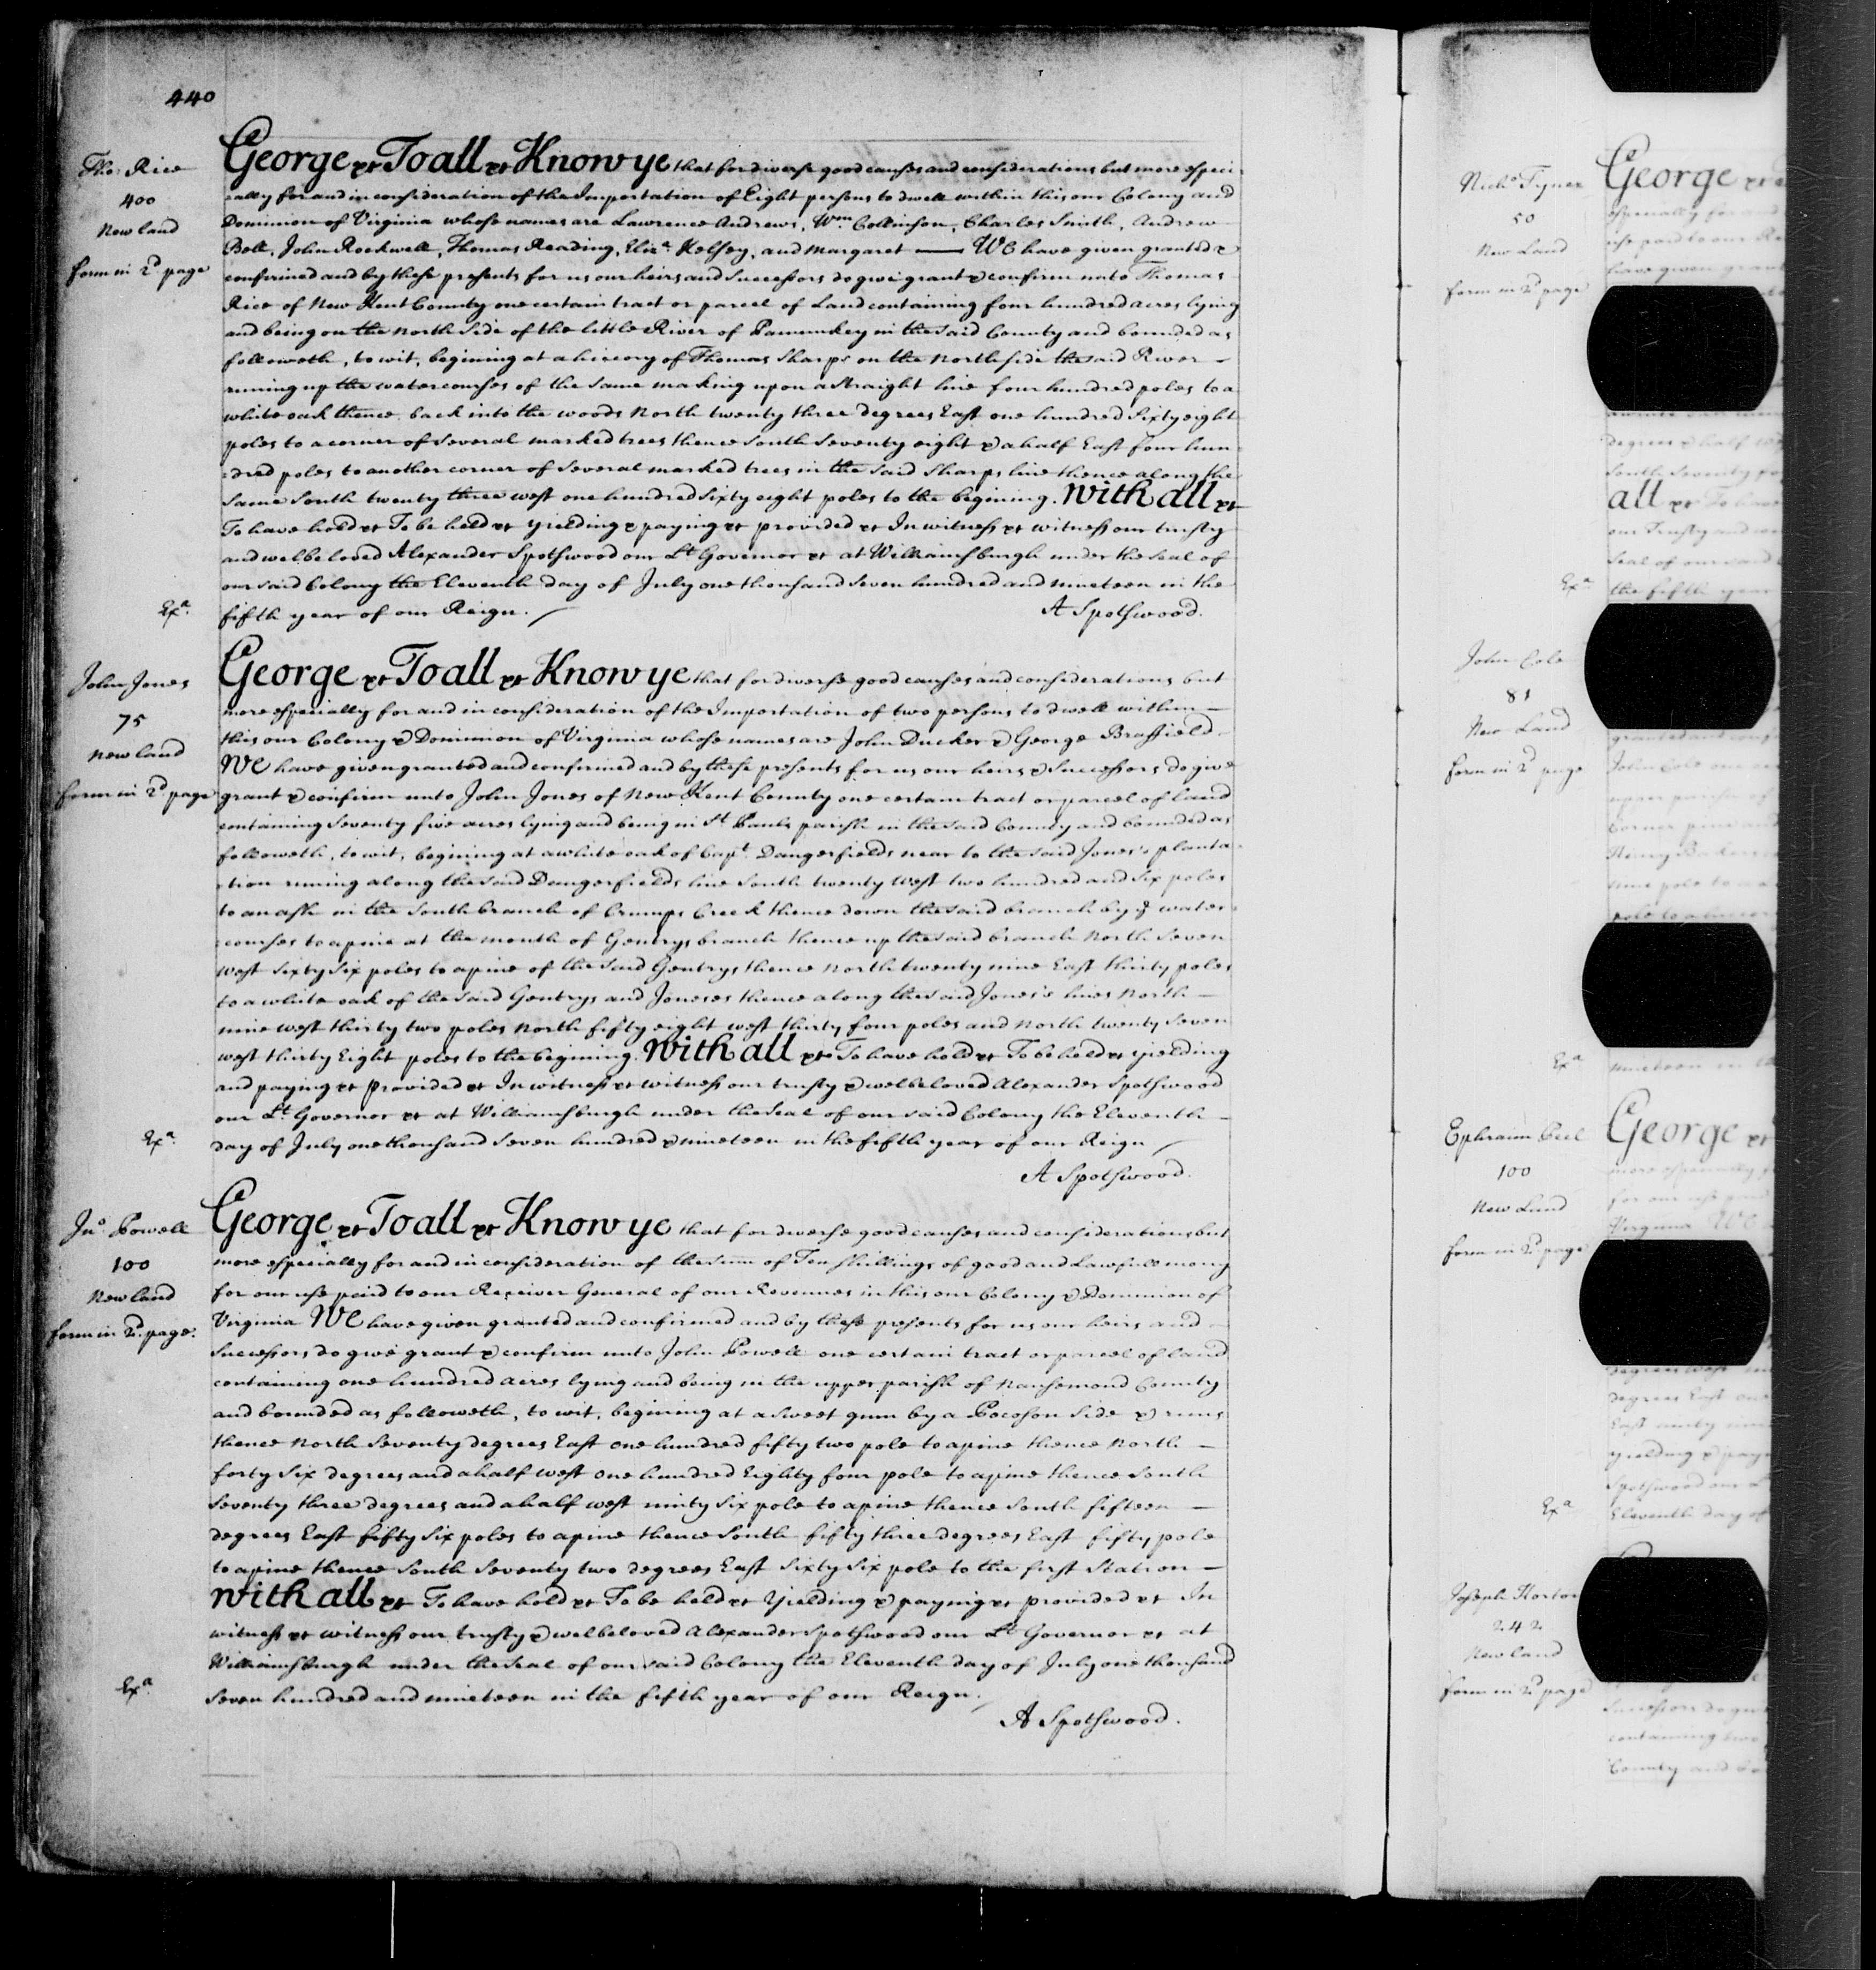 440
Tho: Rice
400
New land
form in 2d page
George &c To all &c Know ye that for diverse good causes and considerations but more especi-
-ally for and in consideration of the Importation of Eight persons to dwell within this our Colony and
Dominion of Virginia whose names are Lawrence Andrews, Wm Collinson, Charles Smith, Andrew
Bell, John Rockwell, Thomas Reading, Eliza Kelsey, and Margaret — We have given granted &
confirmed and by these presents for us our heirs and Successors do give grant & confirm unto Thomas
Rice of New Kent County one certain tract or parcel of Land containing four hundred acres lying
and being on the North Side of the little River of Pamunkey in the said County and bounded as
followeth, to wit, begining at a hiccory of Thomas Sharps on the North side the said River —
runing up the water courses of the same making upon a straight line four hundred poles to a
white oak thence back into the woods North twenty three degrees East one hundred Sixty eight
poles to a corner of several marked trees thence South Seventy eight & a half East four hun-
-dred poles to another corner of several marked trees in the said Sharps line thence along the
same South twenty three west one hundred sixty eight poles to the begining. With all &c
To have hold &c To be held &c yielding & paying &c provided &c In witness &c witness our trusty
and welbeloved Alexander Spotswood our Lt Governor &c at Williamsburgh under the Seal of
our said Colony the Eleventh day of July one thousand seven hundred and nineteen in the
Exa. fifth year of our Reign. A Spotswood.
John Jones
75
New land
form in 2d page
George &c To all &c Know ye that for diverse good causes and considerations but
more especially for and in consideration of the Importation of two persons to dwell within —
this our Colony & Dominion of Virginia whose names are John Ducker & George Brassfield
We have given granted and confirmed and by these presents for us our heirs & Successors do give
grant & confirm unto John Jones of New Kent County one certain tract or parcel of land
containing Seventy five acres lying and being in St Pauls parish in the said County and bounded as
followeth, to wit, begining at a white oak of Capt. Dangerfields near to the said Jones's planta-
-tion runing along the said Dangerfields line South twenty West two hundred and Six poles
to an ash in the South branch of Crumps Creek thence down the said branch by ye water
courses to a pine at the mouth of Gentrys branch thence up the said branch North Seven
West Sixty Six poles to a pine of the said Gentrys thence North twenty nine East thirty poles
to a white oak of the said Gentrys and Joneses thence along the said Jones's lines North —
nine west thirty two poles North fifty eight west thirty four poles and North twenty Seven
west thirty Eight poles to the begining. With all &c To have hold &c To be held &c yielding
and paying &c provided &c In witness &c witness our trusty & welbeloved Alexander Spotswood
our Lt Governor &c at Williamsburgh under the Seal of our said Colony the Eleventh —
Exa. day of July one thousand Seven hundred & nineteen in the fifth year of our Reign
A Spotswood.
Jno Powell
100
New land
form in 2d. page.
George &c To all &c Know ye that for diverse good causes and considerations but
more especially for and in consideration of the Sum of Ten Shillings of good and Lawfull mony
for our use paid to our Receiver General of our Revenues in this our Colony & Dominion of
Virginia We have given granted and confirmed and by these presents for us our heirs and —
Successors do give grant & confirm unto John Powell one certain tract or parcel of land
containing one hundred acres lying and being in the upper parish of Nansemond County
and bounded as followeth, to wit, begining at a sweet gum by a Pocoson Side & runs
thence North Seventy degrees East one hundred fifty two pole to a pine thence North —
forty Six degrees and a half west one hundred Eighty four pole to a pine thence South
Seventy three degrees and a half west ninty Six pole to a pine thence South fifteen —
degrees East fifty Six poles to a pine thence South fifty three degrees East fifty pole
to a pine thence South Seventy two degrees East Sixty Six pole to the first Station —
With all &c To have hold &c To be held &c Yielding & paying &c provided &c In
witness &c witness our trusty & welbeloved Alexander Spotswood our Lt Governor &c at
Williamsburgh under the Seal of our said Colony the Eleventh day of July one thousand
Exa. Seven hundred and nineteen in the fifth year of our Reign.
A Spotswood.
Nicho Tyner
50
New Land
form in 2d page
George &c
especially for and
use paid to our Re
have given grant
degrees & half we
South Seventy
all &c To have
our Trusty and we
Seal of our said
Exa the fifth year
John Cole
81
New Land
form in 2d page
granted and
John Cole one
upper parish of
corner pine and
Henry Bakers
nine pole to a
pole to a
Exa nineteen in
Ephraim Peel
100
New Land
form in 2d page
George &c
more especially
for our use paid
Virginia We
degrees West
degrees East one
East ninty
yielding & payi
Spotswood our L
Exa Eleventh day of
Joseph Horton
242
New land
form in 2d page
Successors do give
containing two
County and